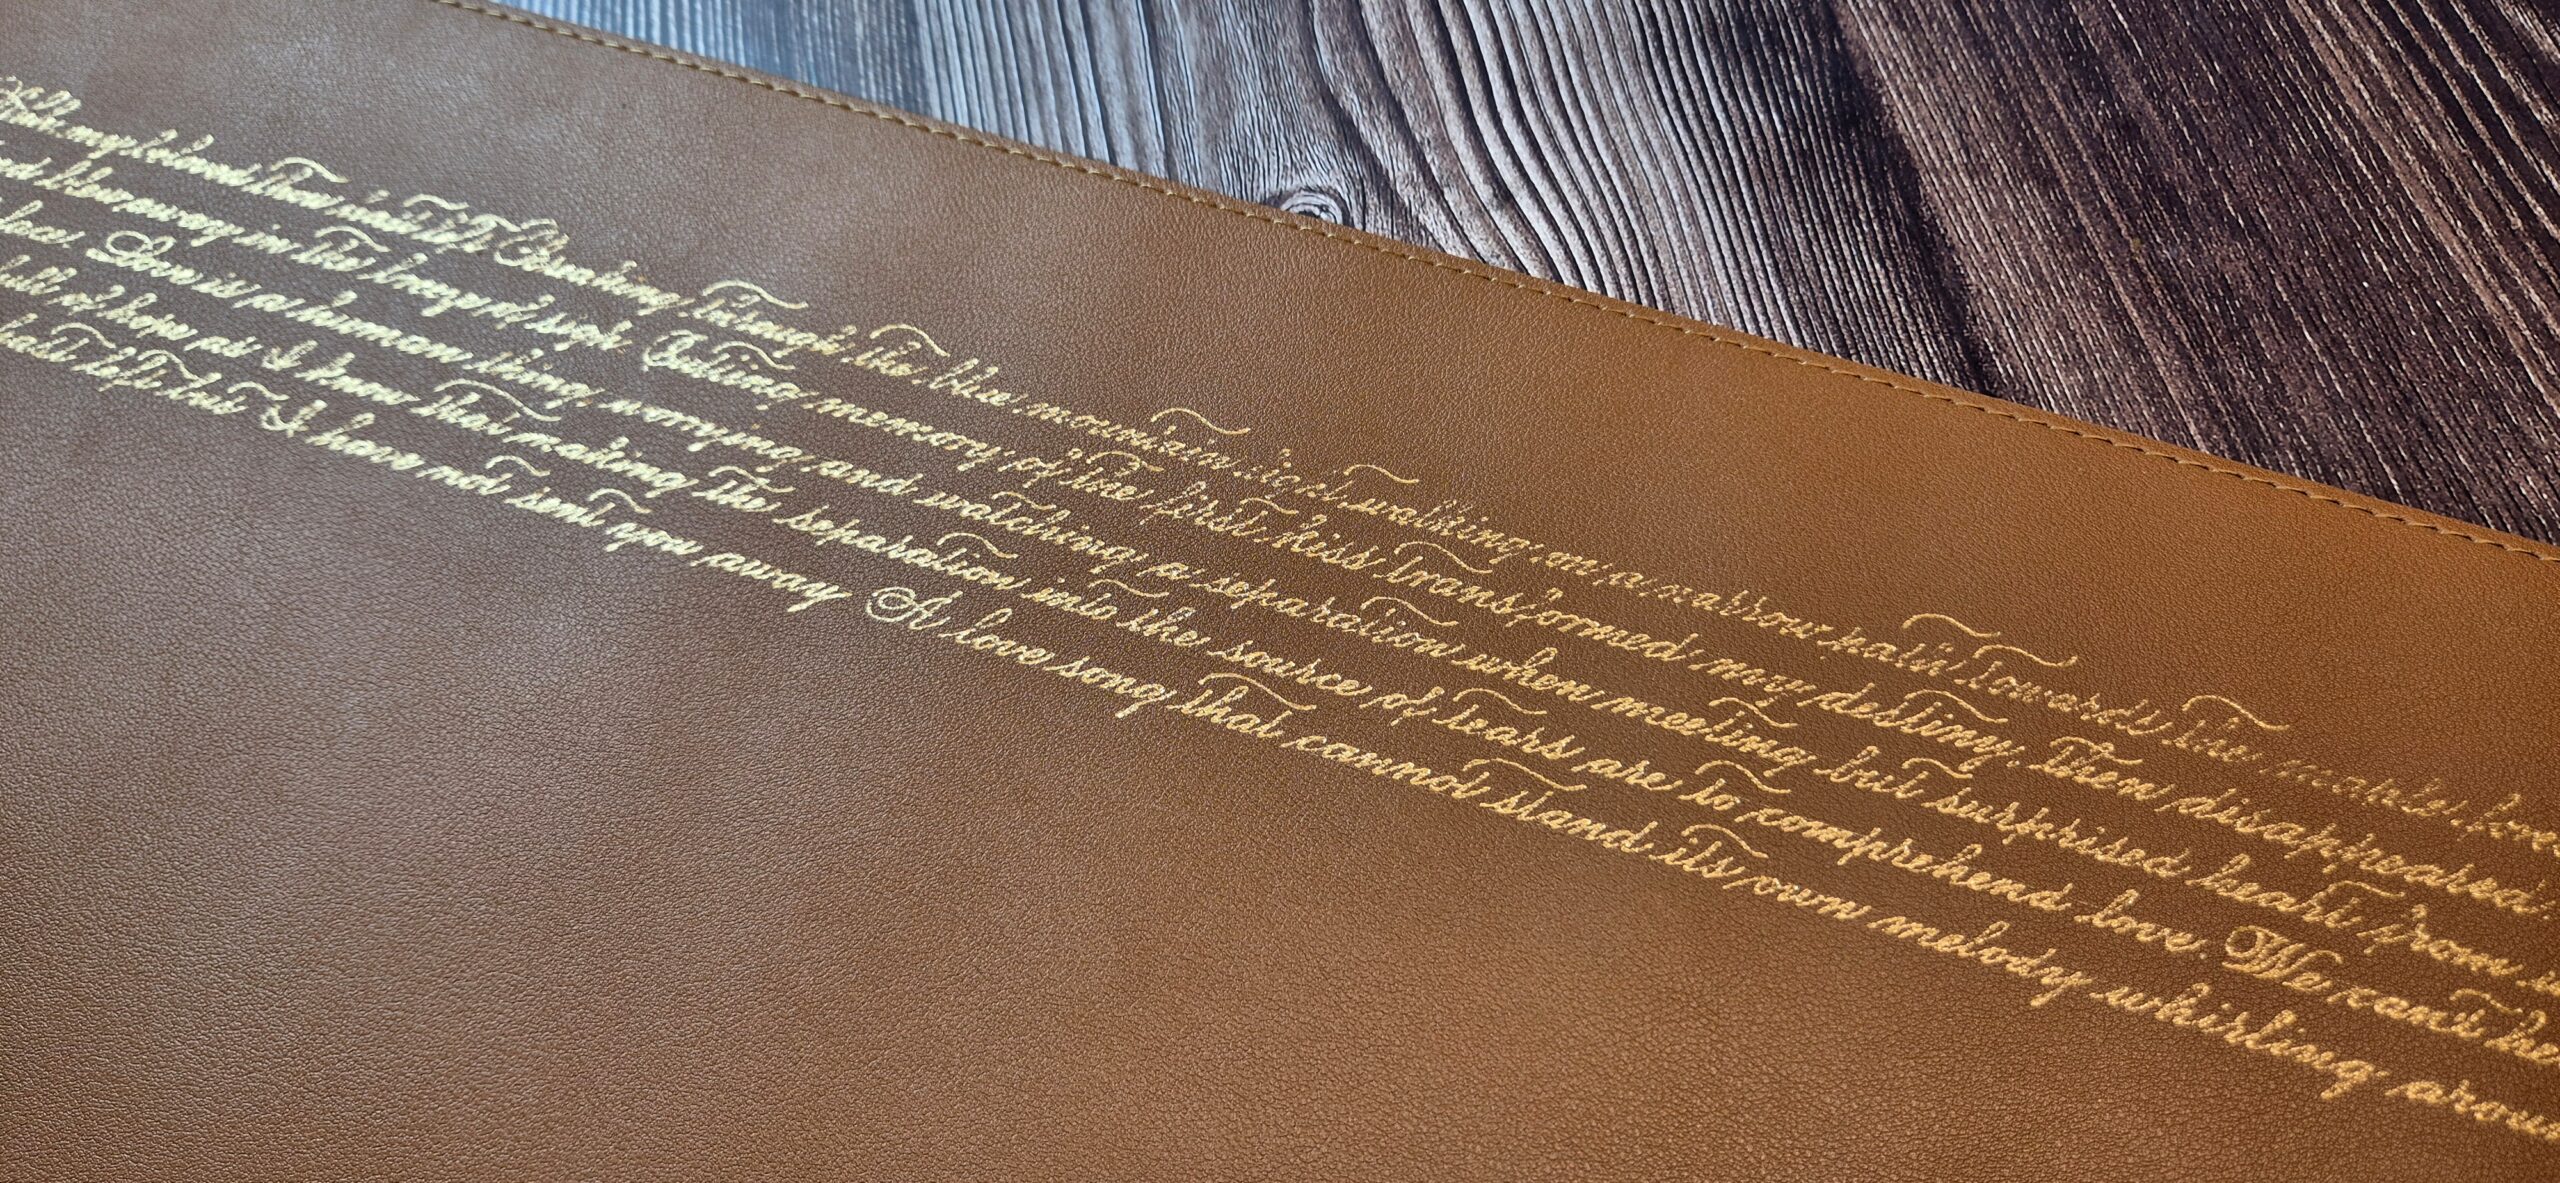 my beloved Thou through the blue mountain light, walking on a narrow path Towards the
away in the of sigh. memory of the first kiss Transformed my destiny, Then disappeared.
Love is a human thing, worrying and watching a separation when meeting but surprised heart from
of hope as I know that making the separation into the source of tears are to comprehend love. We can't
left but I have not sent you away A love song that cannot stand its own melody whirling